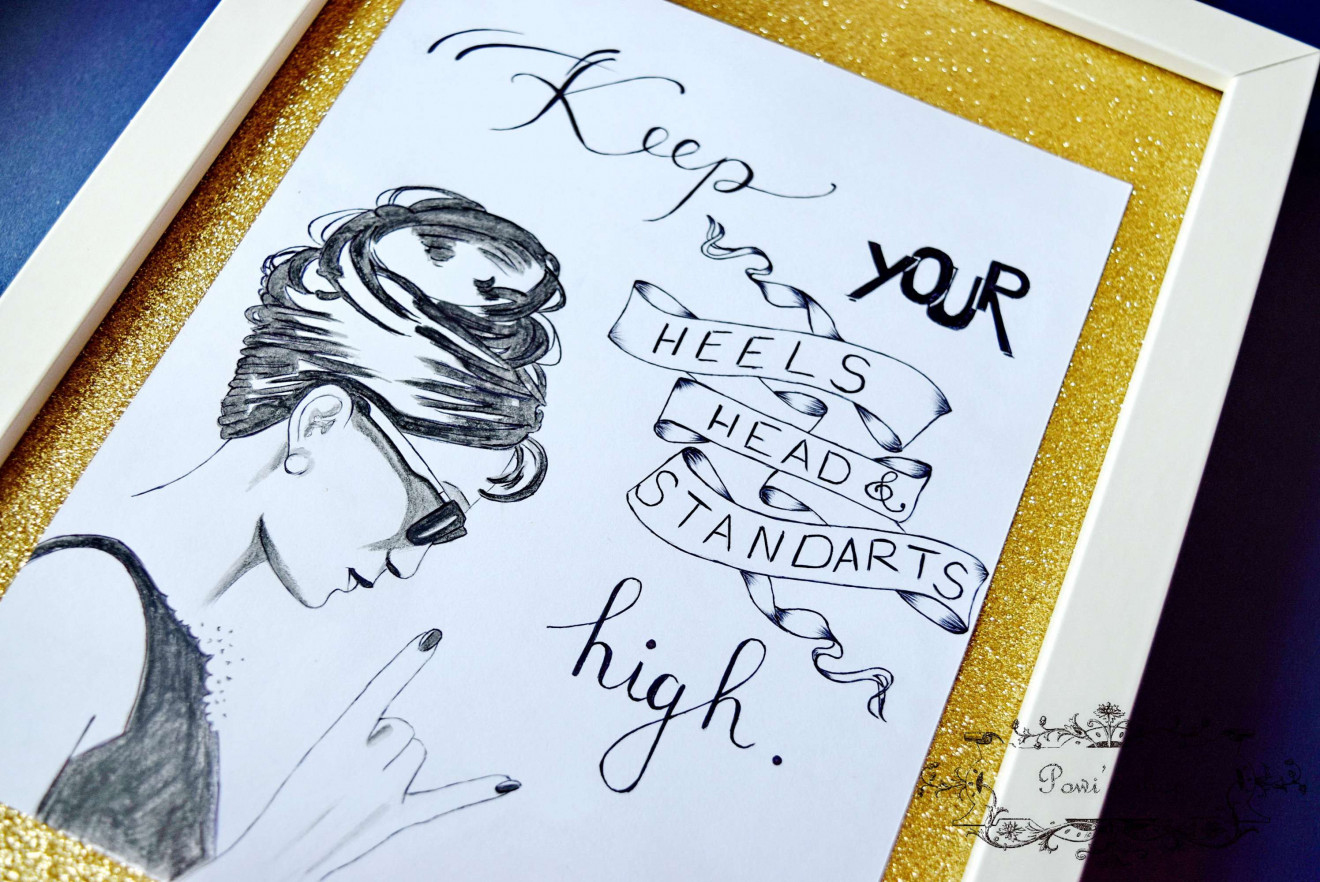 Keep
YOUR
HEELS
HEAD &
STANDARTS
high.
Powi'